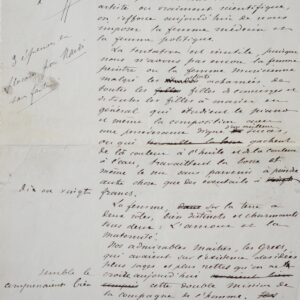 artiste ou vraiment scientifique,
on s'efforce aujourd'hui de nous
imposer la femme médecin et
la femme politique.
La tentative est inutile puisque
nous n'avons pas encore la femme
peintre ou la femme musicienne
malgré les efforts acharnés de
toutes les filles de concierges et
de toutes les filles à marier en
général qui étudient le piano
et même la composition avec
une persévérance digne d'un meilleur succès,
ou qui gachent de
la couleur à l'huile et de la couleur
à l'eau, travaillent la bosse et
même le nu sans parvenir à peindre
autre chose que des éventails à
Dix ou vingt
francs.
La femme, sur la terre a
deux rôles, bien distincts et charmants
tous deux : L'amour et la
maternité.
Nos admirables maîtres, les Grecs,
qui avaient sur l'existence des idées
plus sages et plus nettes qu'on ne le
croit aujourd'hui
cette double mission de
la compagne de l'homme.
Semble la
comprenaient bien